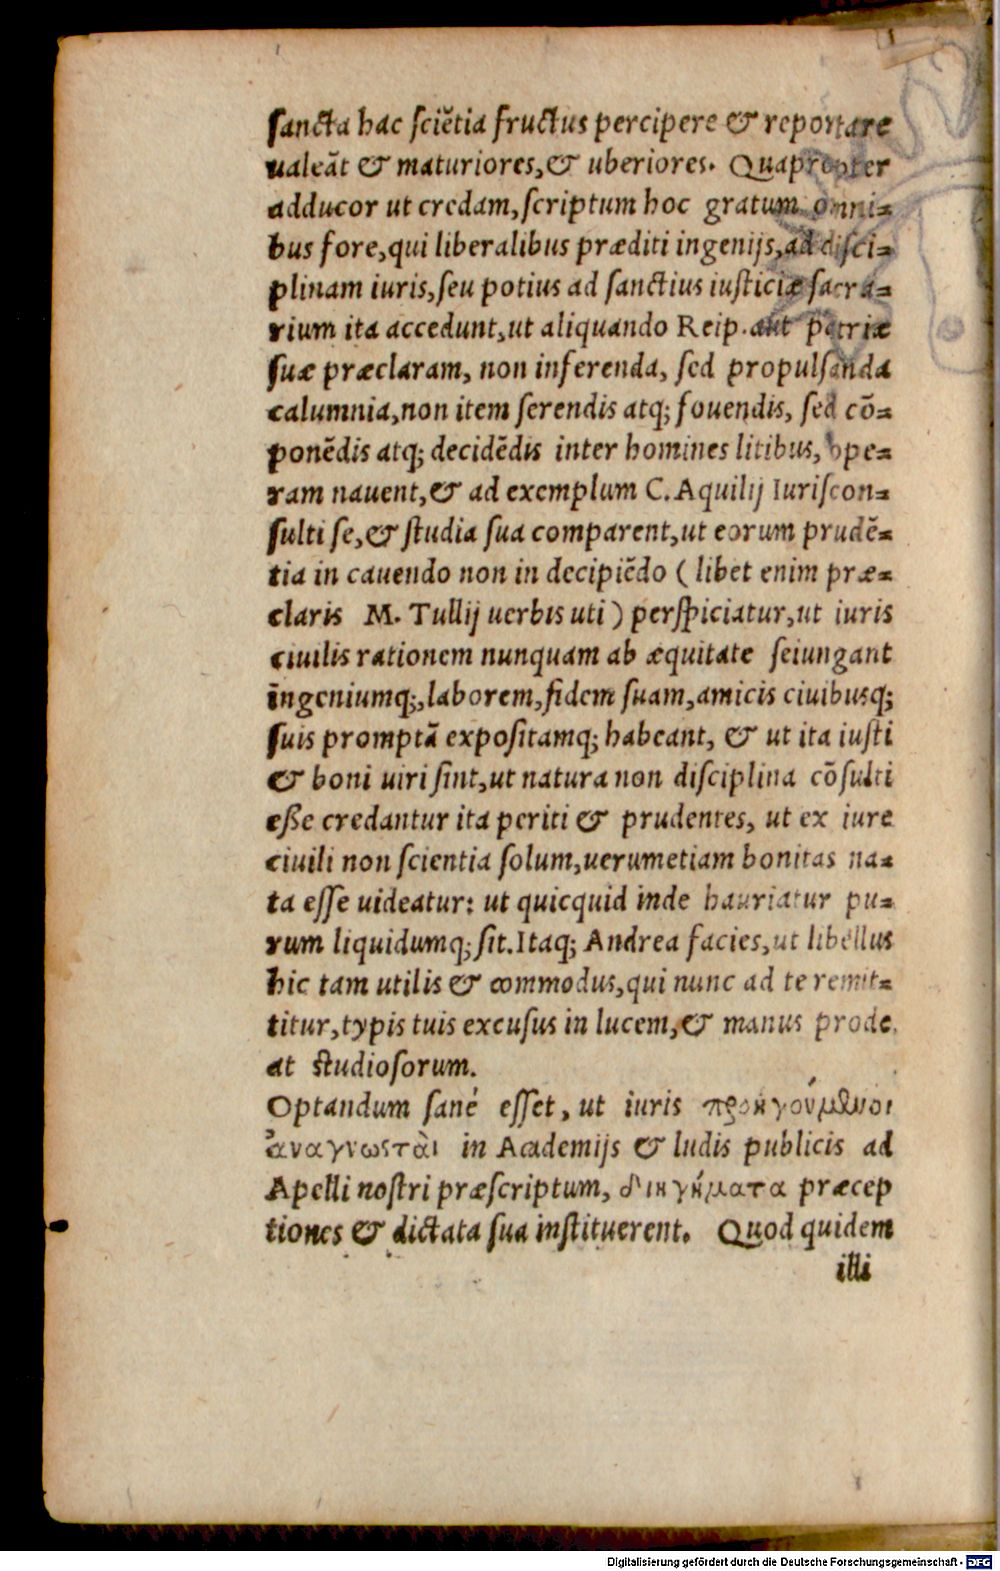 sancta hac sciẽtia fructus percipere & reportare
ualeãt & maturiores, & uberiores. Quapropter
adducor ut credam, scriptum hoc gratum omni=
bus fore, qui liberalibus præditi ingenijs, ad disci=
plinam iuris, seu potius ad sanctius iusticiæ sacra=
rium ita accedunt, ut aliquando Reip. aut patriæ
suæ præclaram, non inferenda, sed propulsanda
calumnia, non item serendis atq; fouendis, sed cõ=
ponẽdis atq; decidẽdis inter homines litibus, ope=
ram nauent, & ad exemplum C. Aquilij Iuriscon=
sulti se, & studia sua comparent, ut eorum prudẽ=
tia in cauendo non in decipiẽdo (libet enim præ=
claris M. Tullij uerbis uti) perspiciatur, ut iuris
ciuilis rationem nunquam ab æquitate seiungant
ingeniumq;, laborem, fidem suam, amicis ciuibusq;
suis promptã expositamq; habeant, & ut ita iusti
& boni uiri sint, ut natura non disciplina cõsulti
eße credantur ita periti & prudentes, ut ex iure
ciuili non scientia solum, uerumetiam bonitas na=
ta esse uideatur: ut quicquid inde hauriatur pu=
rum liquidumq; sit. Itaq; Andrea facies, ut libellus
hic tam utilis & commodus, qui nunc ad te remit=
titur, typis tuis excusus in lucem, & manus prode
at studiosorum.
Optandum sanè esset, ut iuris προηγούμενοι
ἀναγνωσταὶ in Academijs & ludis publicis ad
Apelli nostri præscriptum, διηγήματα præcep
tiones & dictata sua instituerent. Quod quidem
illi
Digitalisierung gefördert durch die Deutsche Forschungsgemeinschaft - DFG